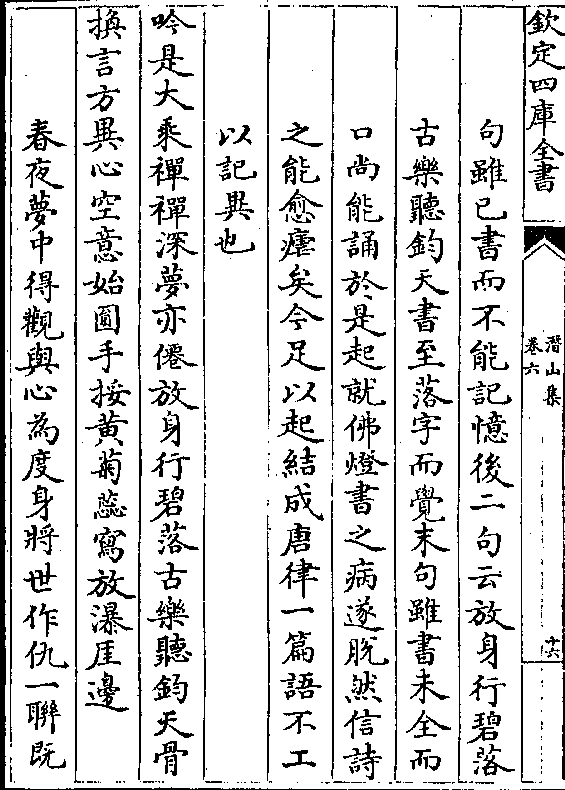 欽定四庫全書
潛山集
卷六
十六
句雖已書而不能記憶後二句云放身行碧落
古樂聽鈞天書至落字而覺末句雖書未全而
口尚能誦於是起就佛燈書之病遂脱然信詩
之能愈瘧矣今足以起結成唐律一篇語不工
以記異也
吟是大乘禪禪深夢亦僊放身行碧落古樂聽鈞天骨
換言方異心空意始圓手挼黄菊蕊寫放瀑厓邊
春夜夢中得觀與心為度身將世作仇一聯既